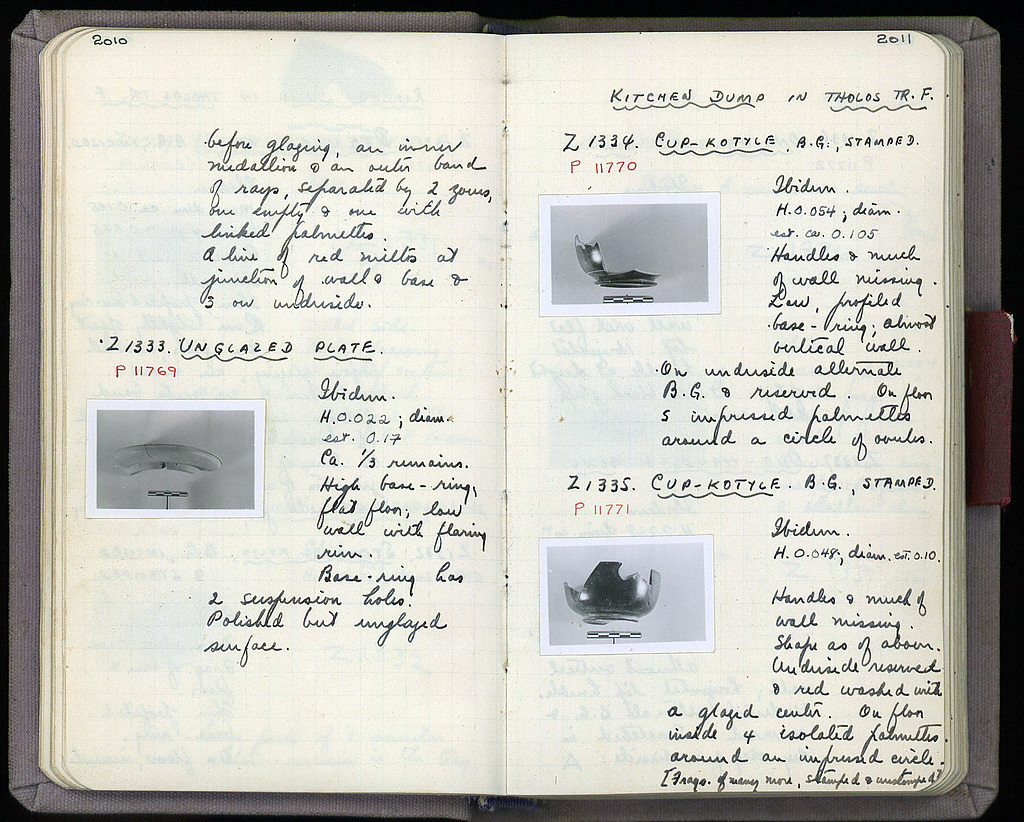 2010
before glazing, an inner
medallion & an outer band
of rays, separated by 2 zones,
one empty & one with
linked palmettes.
A line of red miltos at
junction of wall & base &
3 on underside.
Z 1333. UNGLAZED PLATE.
P 11769
Ibidem.
H. 0.022; diam.
est. 0.17
Ca. 1/3 remains.
High base-ring;
flat floor; low
wall with flaring
rim.
Base-ring has
2 suspension holes.
Polished but unglazed
surface.
2011
KITCHEN DUMP IN THOLOS TR. F.
Z 1334. CUP-KOTYLE, B.G., STAMPED.
P 11770
Ibidem.
H. 0.054; diam.
est. ca. 0.105
Handles & much
of wall missing.
Low, profiled
base-ring; almost
vertical wall.
On underside alternate
B.G. & reserved. On floor
5 impressed palmettes
around a circle of ovules.
Z 1335. CUP-KOTYLE. B.G., STAMPED.
P 11771
Ibidem.
H. 0.048; diam. est. 0.10.
Handles & much of
wall missing.
Shape as of above.
Underside reserved
& red washed with
a glazed center. On floor
inside 4 isolated palmettes
around an impressed circle.
[Frags. of many more, stamped & unstamped]